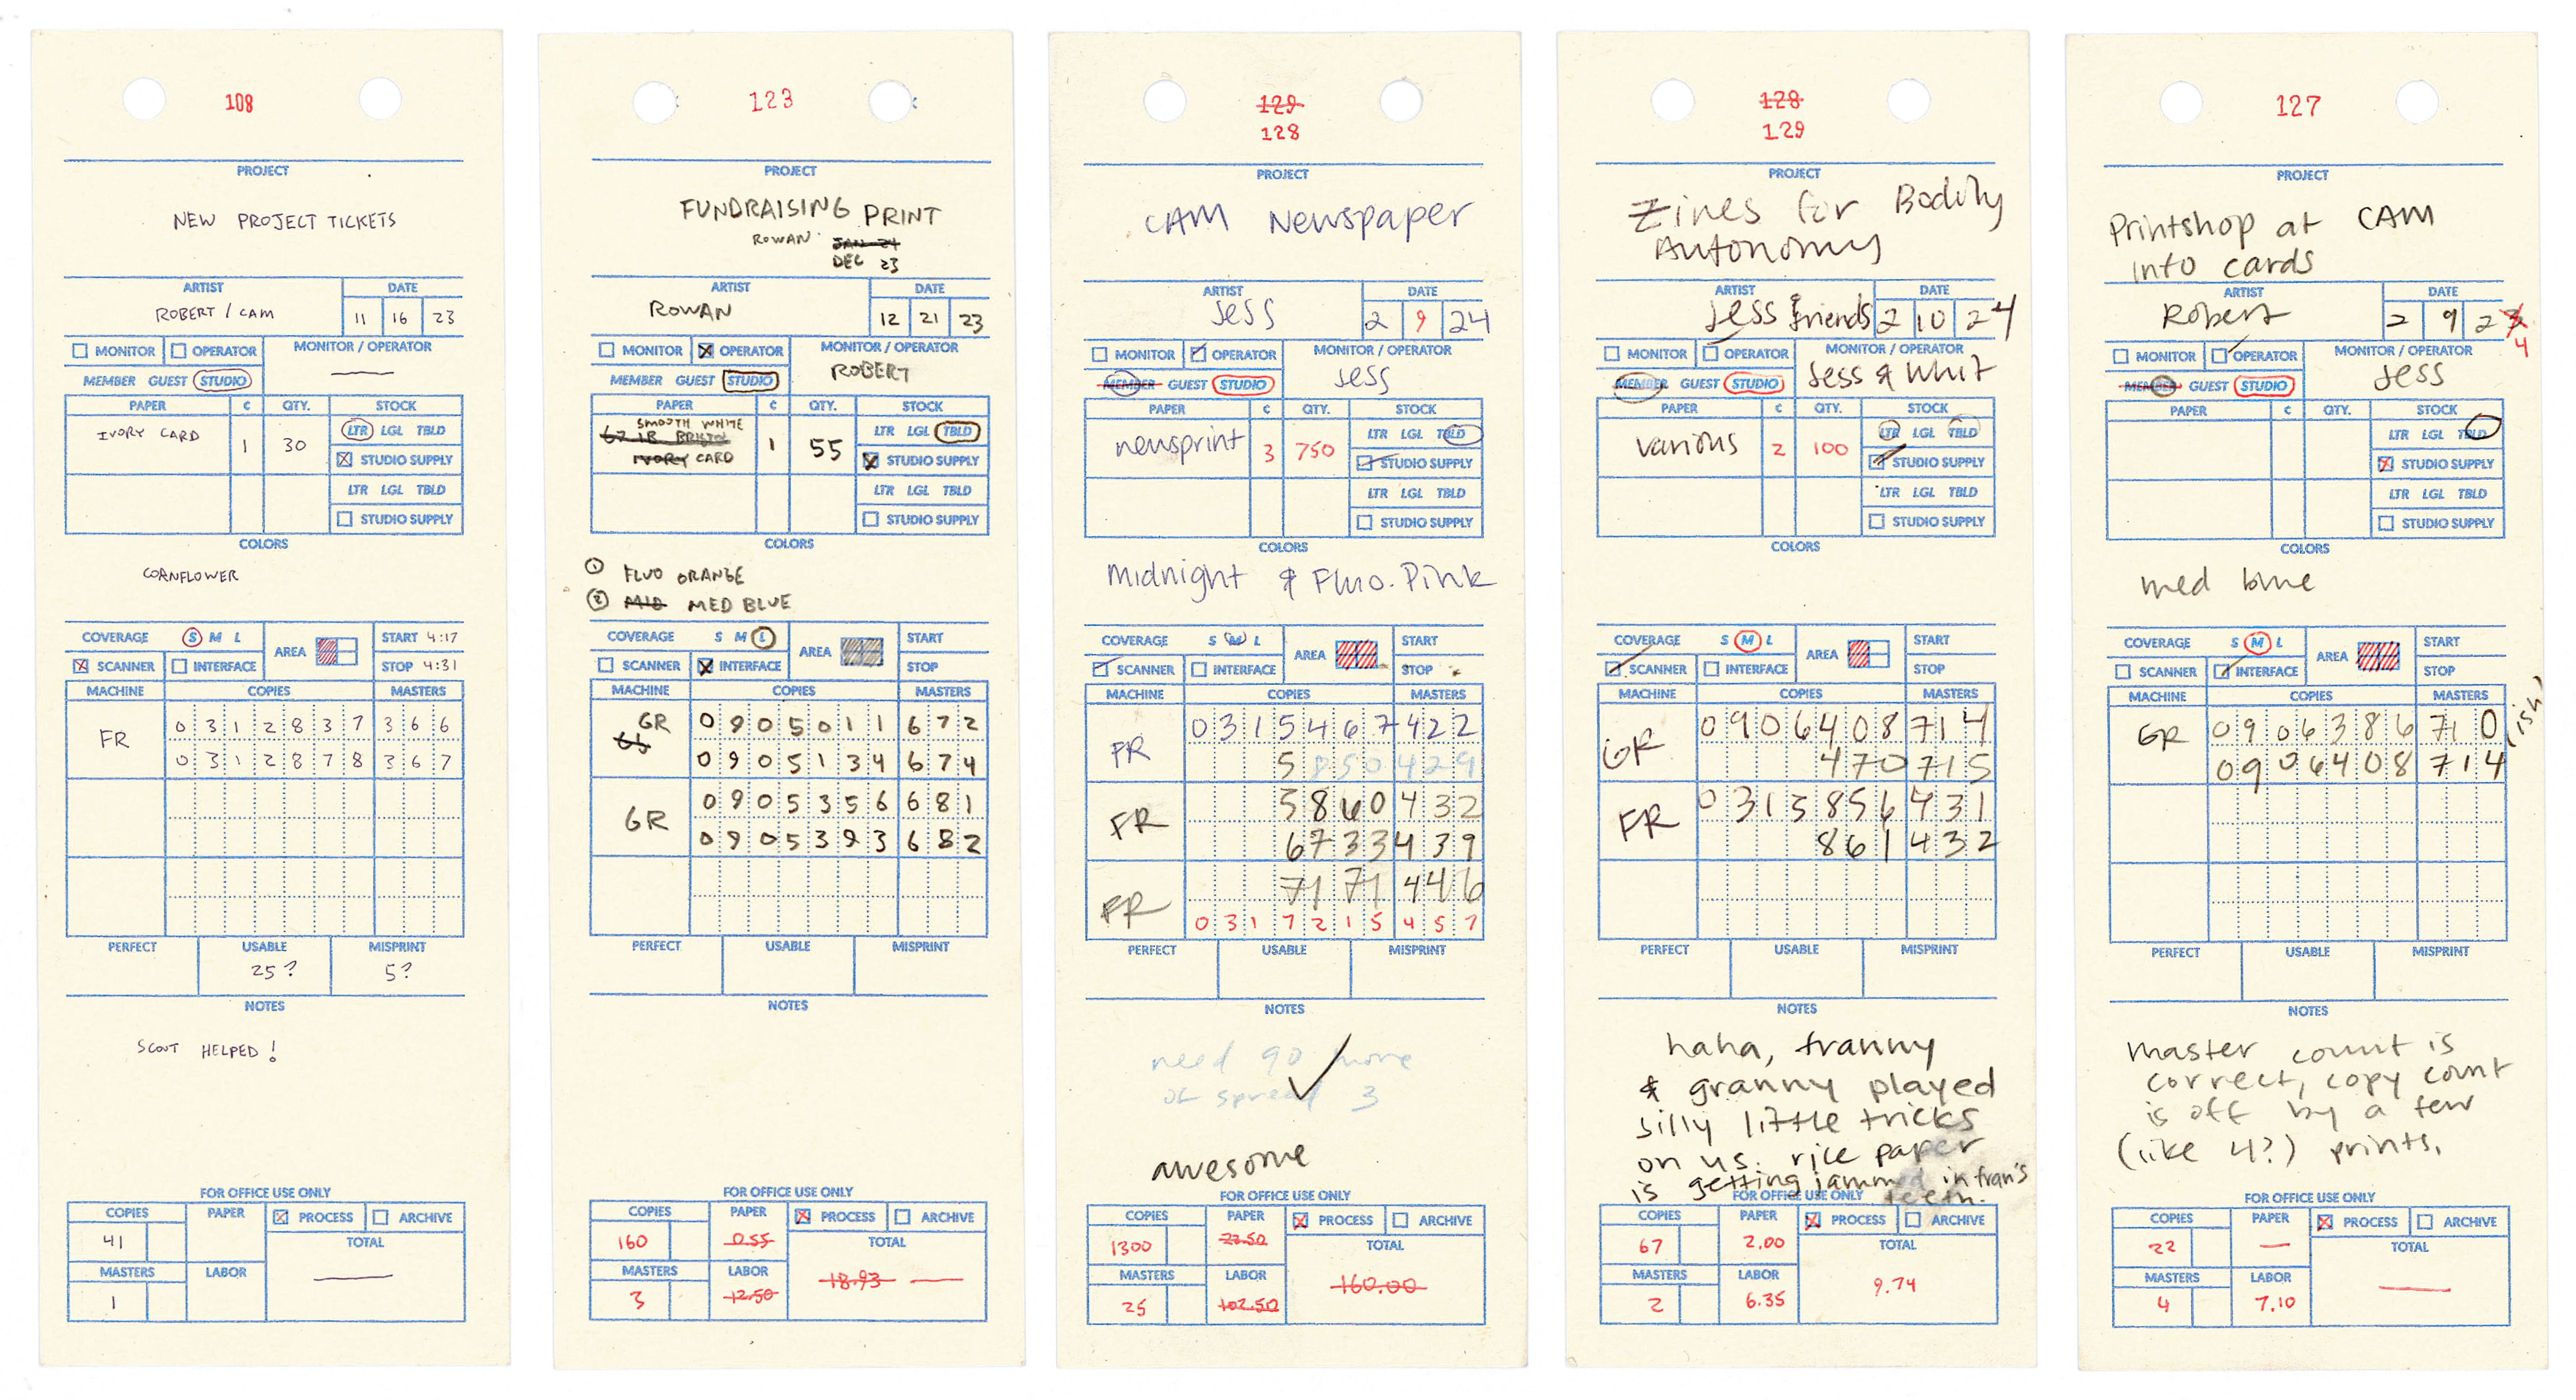 108
PROJECT
NEW PROJECT TICKETS
ARTIST DATE
ROBERT / CAM 11 16 23
MONITOR OPERATOR MONITOR / OPERATOR
MEMBER GUEST STUDIO
PAPER ¢ QTY. STOCK
IVORY CARD 1 30 LTR LGL TBLD
STUDIO SUPPLY
LTR LGL TBLD
STUDIO SUPPLY
COLORS
CORNFLOWER
COVERAGE S M L AREA START 4:17
SCANNER INTERFACE STOP 4:31
MACHINE COPIES MASTERS
FR 0312837 366
0312878 367
PERFECT USABLE MISPRINT
25? 5?
NOTES
SCOUT HELPED!
FOR OFFICE USE ONLY
COPIES PAPER PROCESS ARCHIVE
41 TOTAL
MASTERS LABOR
1
123
PROJECT
FUNDRAISING PRINT
ROWAN JAN 24
DEC 23
ARTIST DATE
ROWAN 12 21 23
MONITOR OPERATOR MONITOR / OPERATOR
ROBERT
MEMBER GUEST STUDIO
PAPER ¢ QTY. STOCK
SMOOTH WHITE
67 LB BRISTOL 1 55 LTR LGL TBLD
IVORY CARD STUDIO SUPPLY
LTR LGL TBLD
STUDIO SUPPLY
COLORS
① FLUO ORANGE
② MID MED BLUE
COVERAGE S M L AREA START
SCANNER INTERFACE STOP
MACHINE COPIES MASTERS
GR 0905011 672
0905134 674
GR 0905356 681
0905393 682
PERFECT USABLE MISPRINT
NOTES
FOR OFFICE USE ONLY
COPIES PAPER PROCESS ARCHIVE
160 0.55 TOTAL
MASTERS LABOR 18.93
3 12.50
129
128
PROJECT
CAM Newspaper
ARTIST DATE
Jess 2 9 24
MONITOR OPERATOR MONITOR / OPERATOR
MEMBER GUEST STUDIO Jess
PAPER ¢ QTY. STOCK
newsprint 3 750 LTR LGL TBLD
STUDIO SUPPLY
LTR LGL TBLD
STUDIO SUPPLY
COLORS
Midnight & Fluo. Pink
COVERAGE S M L AREA START
SCANNER INTERFACE STOP
MACHINE COPIES MASTERS
FR 0315467 422
5850 429
FR 5860 432
6733 439
FR 7171 446
0317215 457
PERFECT USABLE MISPRINT
NOTES
need 90 more
of spread 3
awesome
FOR OFFICE USE ONLY
COPIES PAPER PROCESS ARCHIVE
1300 22.50 TOTAL
MASTERS LABOR 160.00
25 102.50
128
129
PROJECT
Zines for Bodily
Autonomy
ARTIST DATE
Jess & friends 2 10 24
MONITOR OPERATOR MONITOR / OPERATOR
MEMBER GUEST STUDIO Jess & Whit
PAPER ¢ QTY. STOCK
various 2 100 LTR LGL TBLD
STUDIO SUPPLY
LTR LGL TBLD
STUDIO SUPPLY
COLORS
COVERAGE S M L AREA START
SCANNER INTERFACE STOP
MACHINE COPIES MASTERS
GR 0906408 714
470 715
FR 0315856 431
861 432
PERFECT USABLE MISPRINT
NOTES
haha, franny
& granny played
silly little tricks
on us. rice paper
is getting jammed in fran's
teeth.
FOR OFFICE USE ONLY
COPIES PAPER PROCESS ARCHIVE
67 2.00 TOTAL
MASTERS LABOR 9.74
2 6.35
127
PROJECT
Printshop at CAM
into cards
ARTIST DATE
Robert 2 9 23
4
MONITOR OPERATOR MONITOR / OPERATOR
MEMBER GUEST STUDIO Jess
PAPER ¢ QTY. STOCK
LTR LGL TBLD
STUDIO SUPPLY
LTR LGL TBLD
STUDIO SUPPLY
COLORS
med blue
COVERAGE S M L AREA START
SCANNER INTERFACE STOP
MACHINE COPIES MASTERS
GR 0906386 710 (ish)
0906408 714
PERFECT USABLE MISPRINT
NOTES
master count is
correct, copy count
is off by a few
(like 4?) prints.
FOR OFFICE USE ONLY
COPIES PAPER PROCESS ARCHIVE
22 — TOTAL
MASTERS LABOR
4 7.10